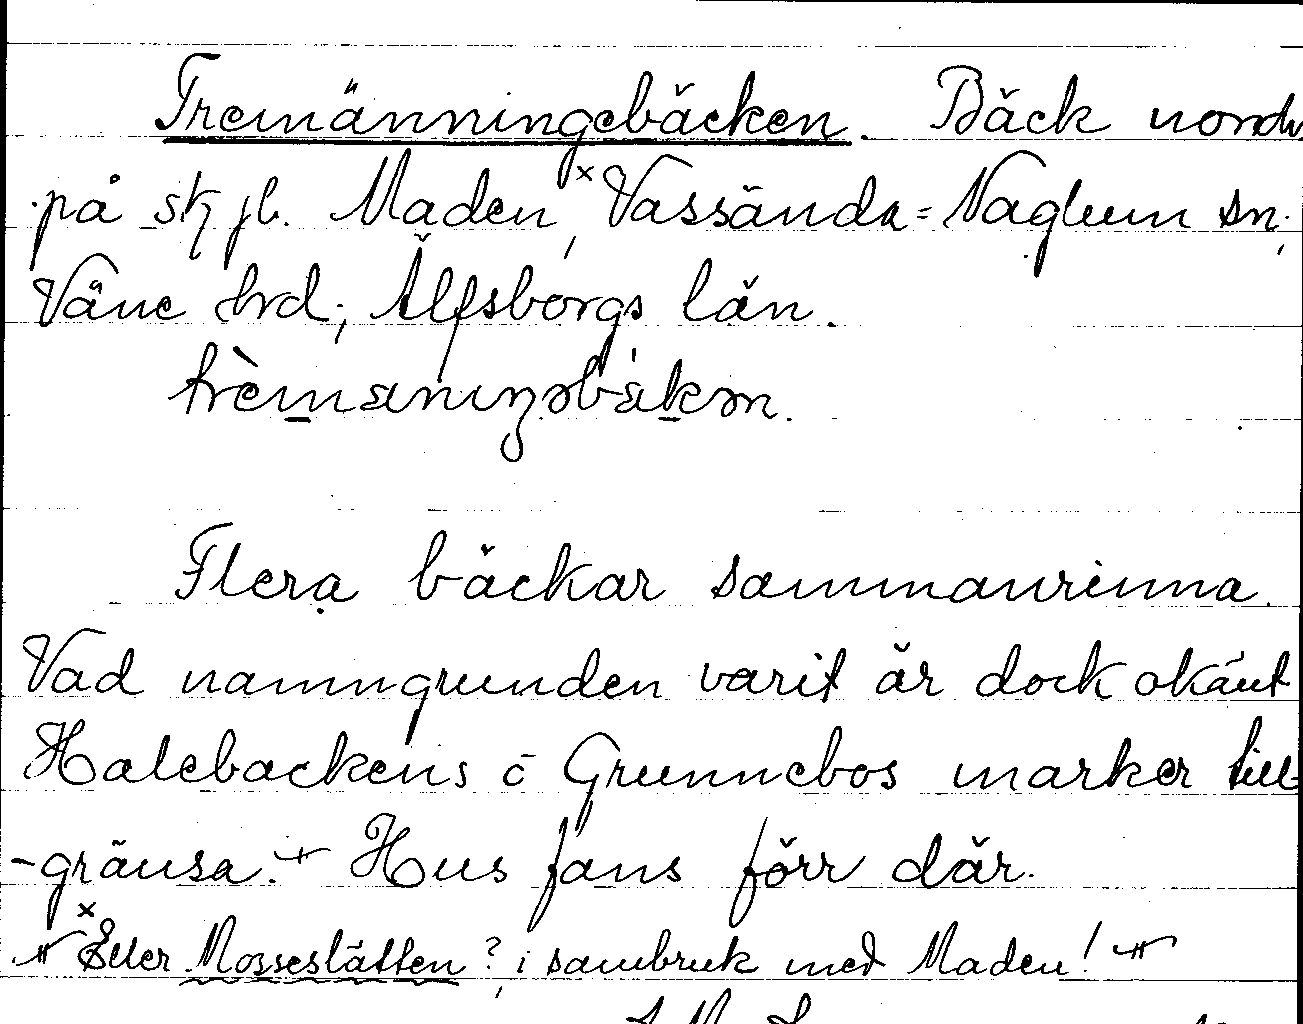 Tremänningebäcken. Bäck nordv
på sk jb. Maden,ˣ Vassända=Naglum sn,
Väne hrd, Älfsborgs län.
Flera bäckar sammanrinna.
Vad namngrunden varit är dock okänt
Halebackens o Grunnebos marker till-
-gränsa. + Hus fans förr där.
ˣ Eller Mosseslätten?, i sambruk med Maden!